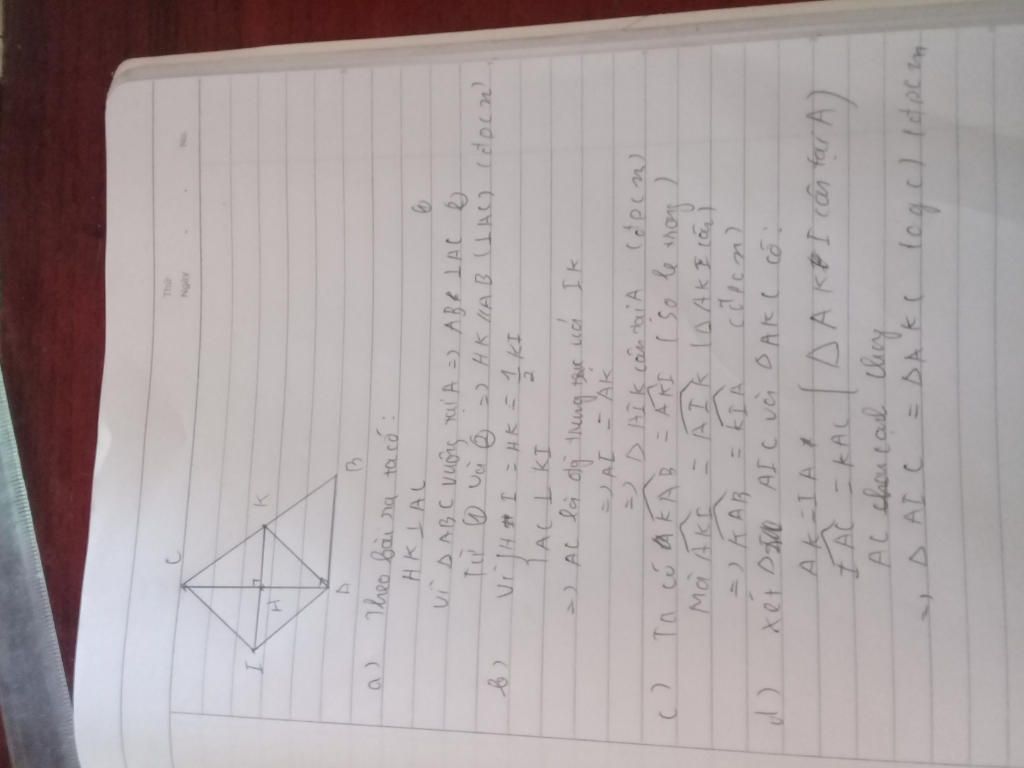 Thứ
Ngày
No.
C
K
I
H
B
A
a) Theo bài ra ta có:
HK ⊥ AC
Vì Δ ABC vuông tại A => AB ⊥ AC ②
Từ ① và ② => HK // AB (⊥ AC) (đpcm)
b) Vì { HI = HK = 1/2 KI
AC ⊥ KI
=> AC là đg trung trực của IK
=> AI = AK
=> Δ AIK cân tại A (đpcm)
c) Ta có KAB = AKI (so le trong)
Mà AKI = AIK (Δ AKI cân)
=> KAB = KIA (đpcm)
d) xét Δ AIC và Δ AKC có:
AK = IA (Δ AKI cân tại A)
IAC = KAC
AC cạnh chung
=> Δ AIC = Δ AKC (cgc) (đpcm